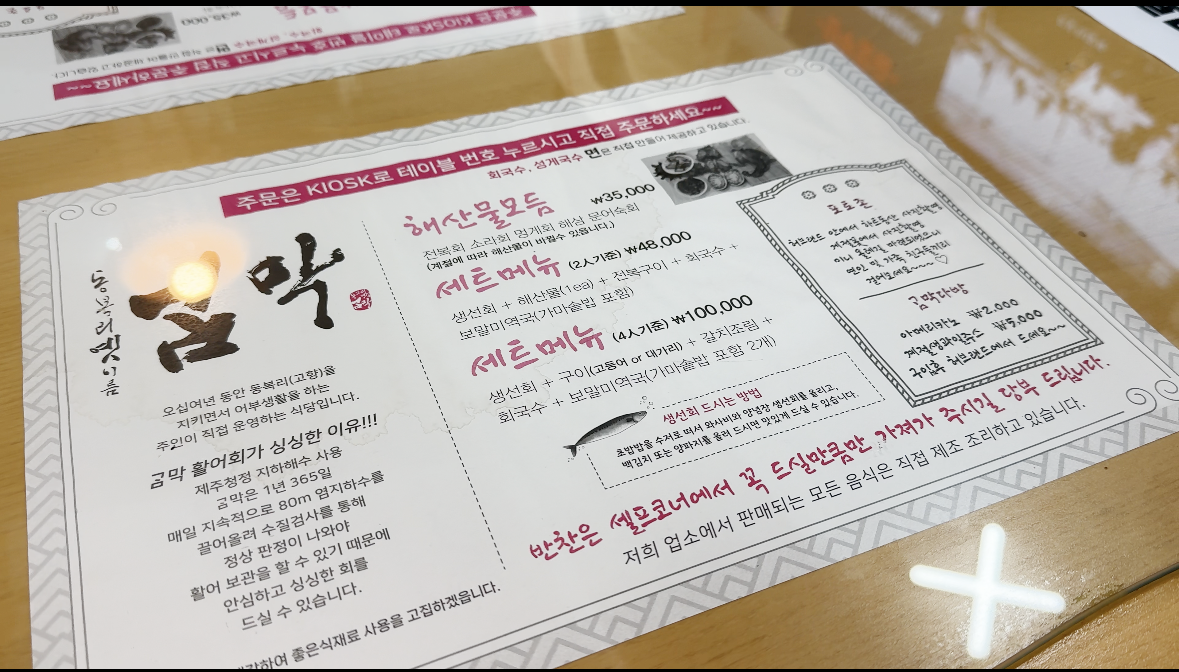 주문은 KIOSK로 테이블 번호 누르시고 직접 주문하세요~~
회국수, 성게국수 면은 직접 만들어 제공하고 있습니다.
동복리 옛이름
곰막
오십여년 동안 동복리(고향)을
지키면서 어부생활을 하는
주인이 직접 운영하는 식당입니다.
곰막 활어회가 싱싱한 이유!!!
제주청정 지하해수 사용
곰막은 1년 365일
매일 지속적으로 80m 염지하수를
끌어올려 수질검사를 통해
정상 판정이 나와야
활어 보관을 할 수 있기 때문에
안심하고 싱싱한 회를
드실 수 있습니다.
하여 좋은식재료 사용을 고집하겠읍니다.
해산물모듬 ₩35,000
전복회 소라회 멍게회 해삼 문어숙회
(계절에 따라 해산물이 바뀔수 있읍니다.)
세트메뉴 (2人기준) ₩48,000
생선회 + 해산물(1ea) + 전복구이 + 회국수 +
보말미역국(가마솥밥 포함)
세트메뉴 (4人기준) ₩100,000
생선회 + 구이(고등어 or 대가리) + 갈치조림 +
회국수 + 보말미역국(가마솥밥 포함 2개)
생선회 드시는 방법
초밥밥을 수저로 떠서 와사비와 양념장 생선회를 올리고,
백김치 또는 양파지를 올려 드시면 맛있게 드실 수 있습니다.
포토존
허브랜드 안에서 하르동산 사진촬영
계절꽃에서 사진촬영
미니 올레길 마련되었으니
연인 및 가족 친구들끼리
걸어보세요~~~♡
곰막다방
아메리카노 ₩2,000
제철생과일쥬스 ₩5,000
구입후 허브랜드에서 드세요~~
반찬은 셀프코너에서 꼭 드실만큼만 가져가 주시길 당부 드립니다.
저희 업소에서 판매되는 모든 음식은 직접 제조 조리하고 있습니다.